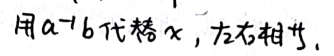 用a⁻¹b代替x，左右相等.